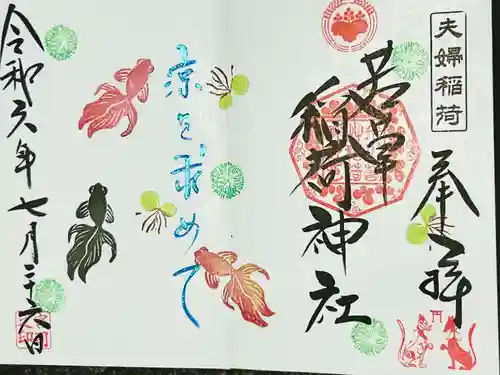 夫婦稲荷
奉拝
若草
稲荷神社
涼を求めて
令和六年七月二十六日